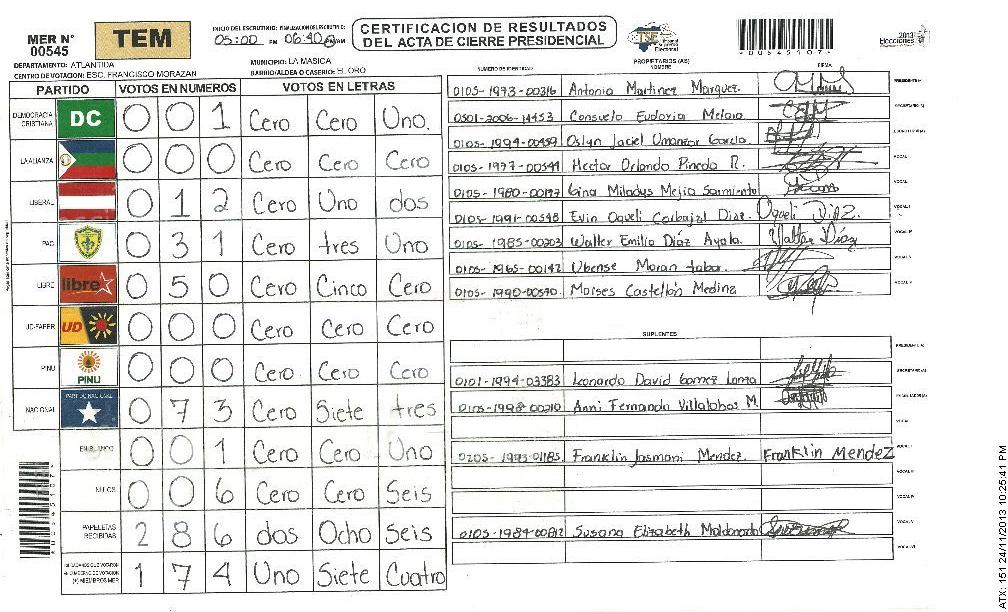 MER N° 00545
TEM
INICIO DEL ESCRUTINIO: 05:00 PM
FINALIZACION DEL ESCRUTINIO: 06:40
CERTIFICACION DE RESULTADOS
DEL ACTA DE CIERRE PRESIDENCIAL
TSE
DEPARTAMENTO: ATLANTIDA
MUNICIPIO: LA MASICA
CENTRO DE VOTACION: ESC. FRANCISCO MORAZAN
BARRIO/ALDEA O CASERIO: EL ORO
PARTIDO VOTOS EN NUMEROS VOTOS EN LETRAS
DEMOCRACIA CRISTIANA DC 0 0 1 Cero Cero Uno.
LA ALIANZA 0 0 0 Cero Cero Cero
LIBERAL 0 1 2 Cero Uno dos
PAC 0 3 1 Cero tres Uno
LIBRE libre 0 5 0 Cero Cinco Cero
UD-FAPER UD 0 0 0 Cero Cero Cero
PINU PINU 0 0 0 Cero Cero Cero
NACIONAL PARTIDO NACIONAL 0 7 3 Cero Siete tres
EN BLANCO 0 0 1 Cero Cero Uno
NULOS 0 0 6 Cero Cero Seis
PAPELETAS RECIBIDAS 2 8 6 dos Ocho Seis
1 7 4 Uno Siete Cuatro
PROPIETARIOS (AS)
NUMERO DE IDENTIDAD NOMBRE FIRMA
0105-1973-00316 Antonio Martinez Marquez.
0501-2006-14453 Consuelo Eudovia Mejia
0105-1994-00459 Oslyn Jaciel Umanzor Garcia
0105-1977-00541 Hector Orlando Pineda R.
0105-1980-00197 Gina Miladys Mejia Sarmiento
0105-1991-00548 Evin Oqueli Carbajal Diaz. Oqueli Diaz.
0105-1985-00203 Walter Emilio Díaz Ayala. Walter Díaz
0105-1965-00142 Ubense Moran tabor.
0105-1990-00590 Moises Castellón Medina
SUPLENTES
0101-1994-03383 Leonardo David Gomez
0105-1998-00210 Anni Fernanda Villalobos M.
0205-1993-01185 Franklin Jasmani Mendez. Franklin Mendez
0105-1984-00812 Susana Elizabeth Maldonado
ATX: 151 24/11/2013 10:25:41 PM